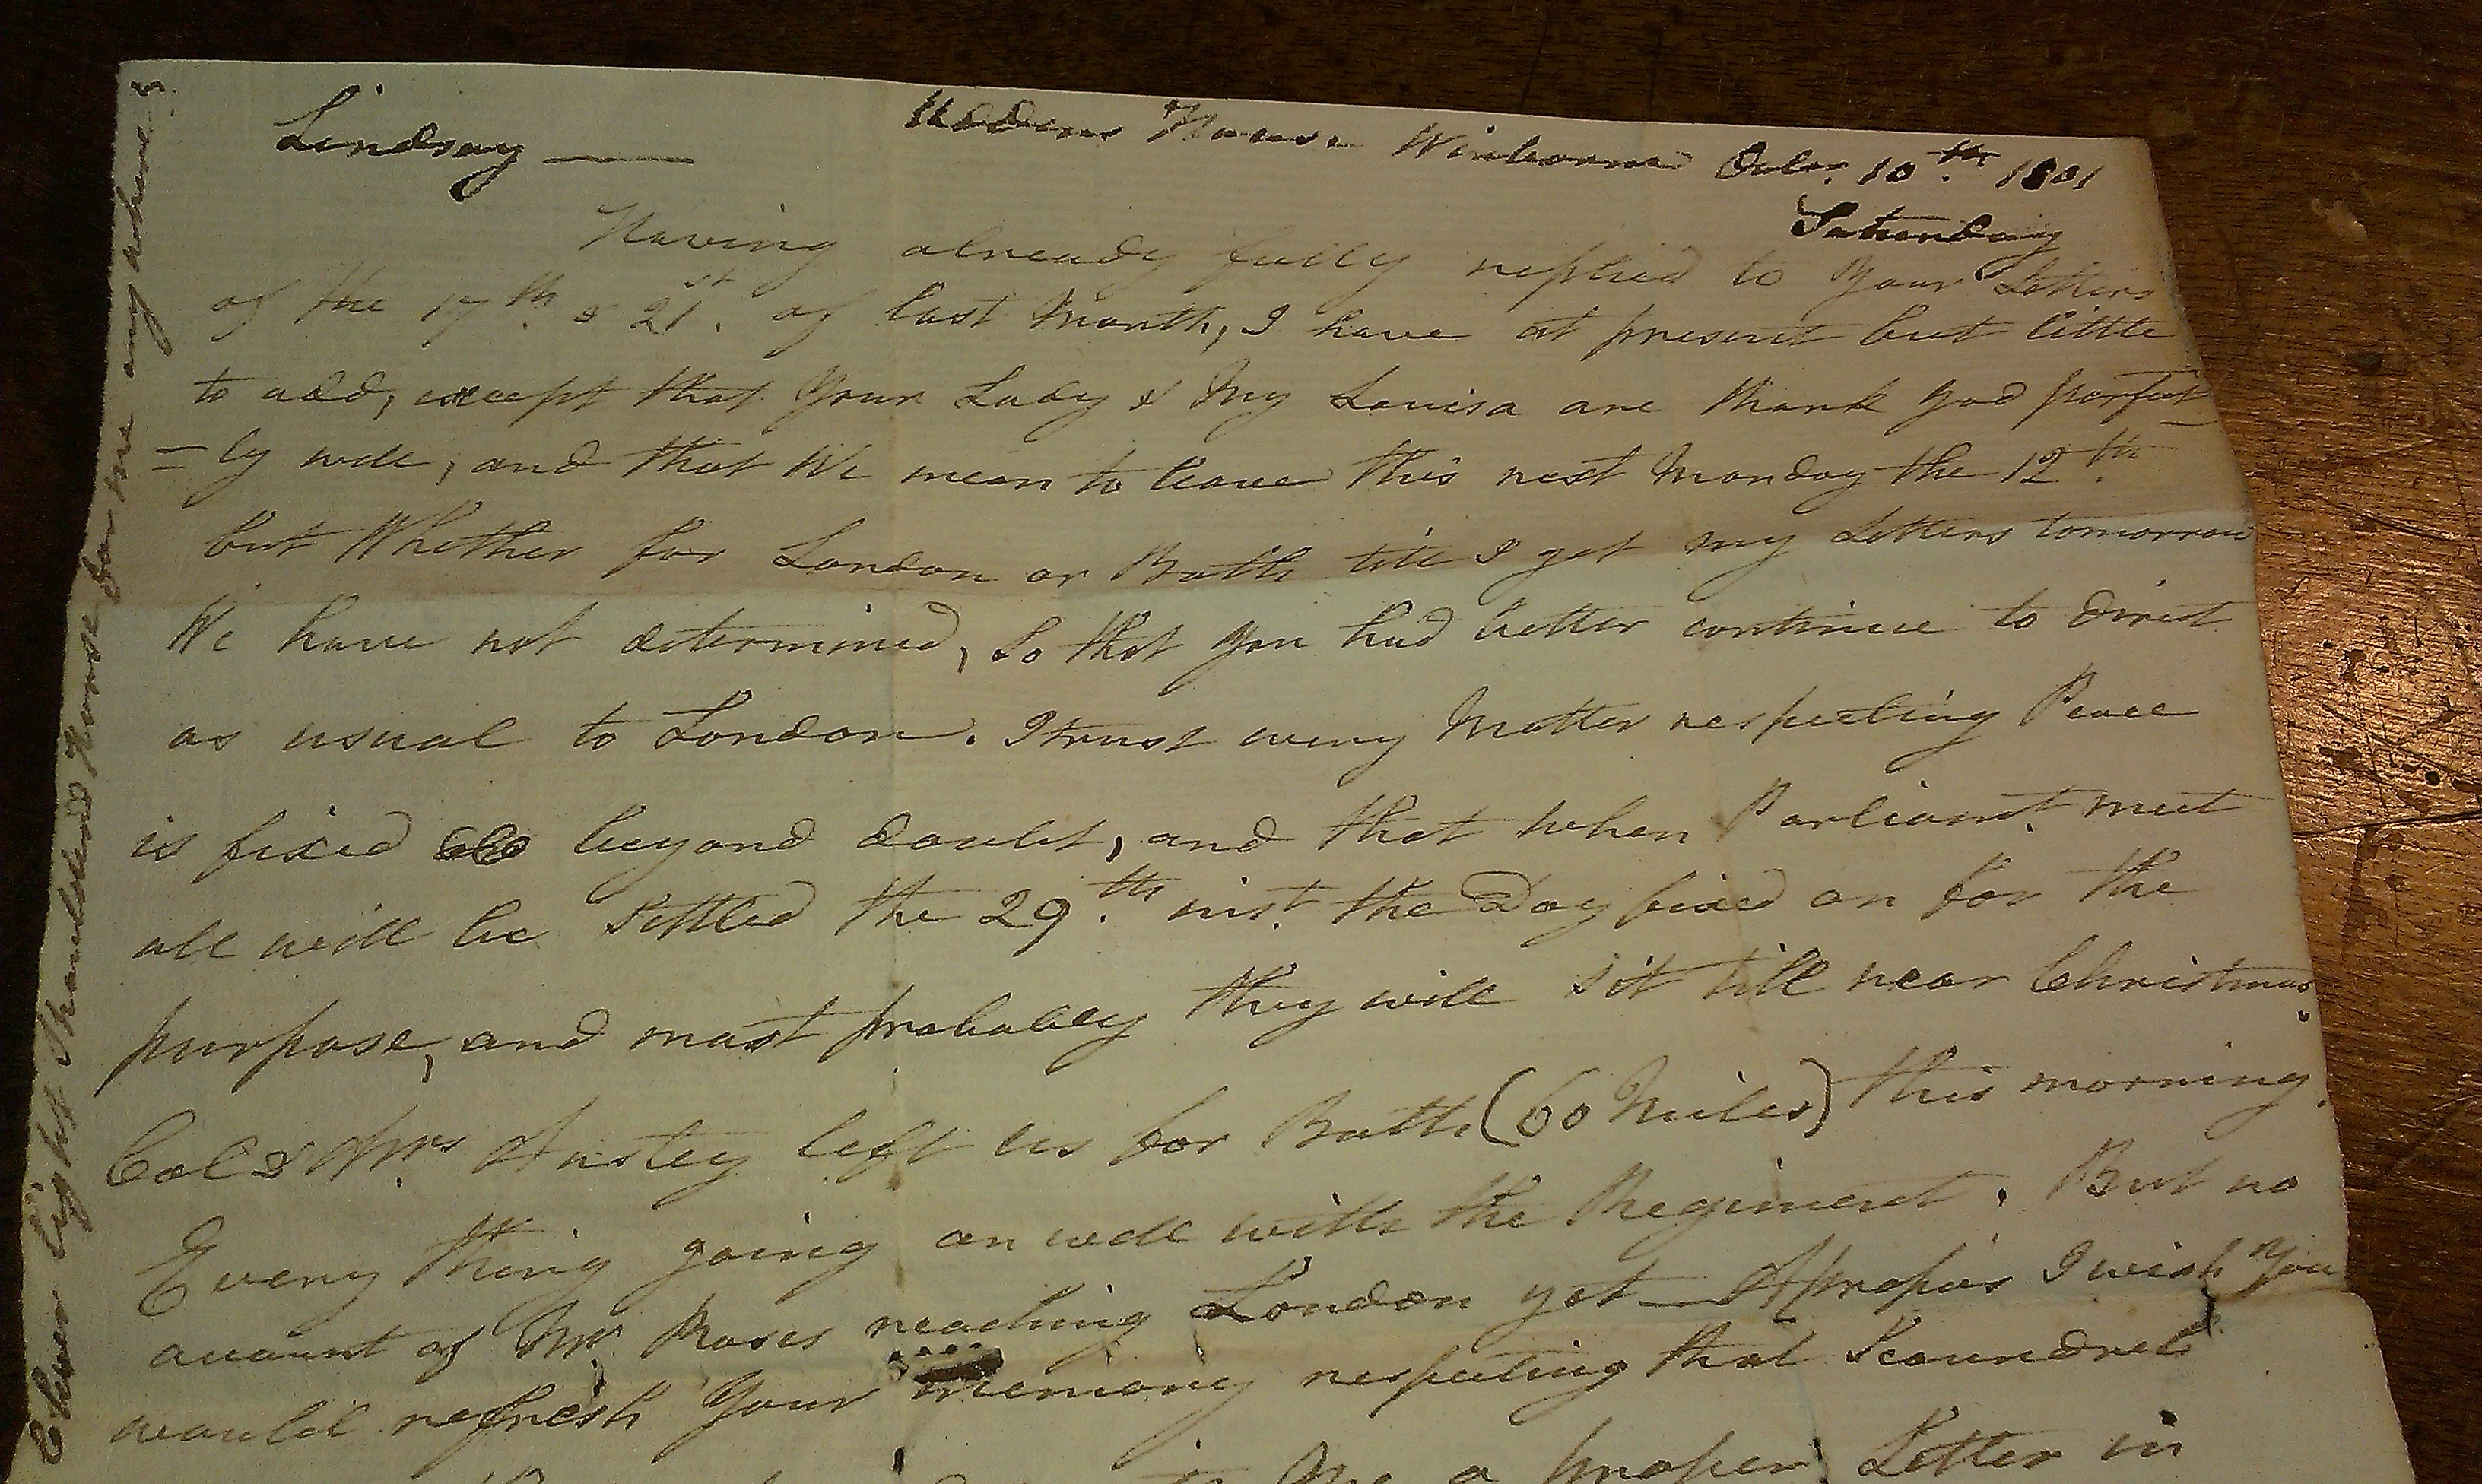 Lindsay —
Uddens House Winborne Octbr. 10th. 1801
Saturday
Having already fully replied to Your Letters
of the 17th. & 21st. of last Month, I have at present but little
to add, except that Your Lady & My Louisa are thank God perfect
=ly well, and that We mean to leave this next Monday the 12th.
but Whether for London or Bath till I get my Letters tomorrow
We have not determined, So that You had better continue to direct
as usual to London. I trust every Matter respecting Peace
is fixed beyond doubt, and that when Parliamt. meet
all will be Settled the 29.th inst. the Day fixed on for the
purpose, and most probably they will sit till near Christmas.
Col & Mrs. Anstey left us for Bath (60 Miles) this morning.
Every thing going on well with the Regiment. But no
account of Mr. Roses reaching London yet — Apropos I wish You
would refresh Your memory respecting that Scoundrel
a proper Letter in
light Shouldered Horse for me any where